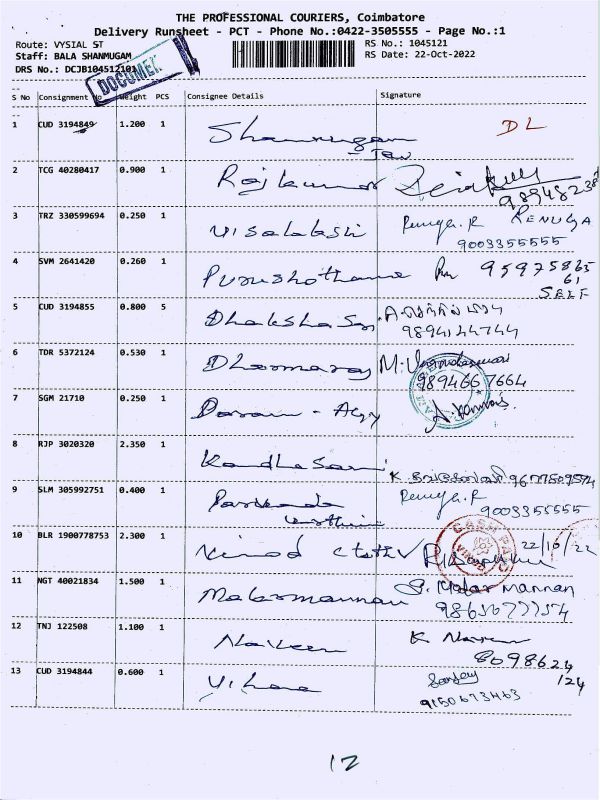 THE PROFESSIONAL COURIERS, Coimbatore
Delivery Runsheet - PCT - Phone No.:0422-3505555 - Page No.:1
Route: VYSIAL ST RS No.: 1045121
Staff: BALA SHANMUGAM RS Date: 22-Oct-2022
DRS No.: DCJB104512101
DOCUMENT
S No Consignment No Weight PCS Consignee Details Signature
1 CUD 3194849 1.200 1 Shanmugam DL
2 TCG 40280417 0.900 1 Rajkumar
3 TRZ 330599694 0.250 1 Visalakshi Renuga.R RENUGA
9003355555
4 SVM 2641420 0.260 1 Purushothama
SELF
5 CUD 3194855 0.800 5
9894144744
6 TDR 5372124 0.530 1 Dharmaraj
9894667664
7 SGM 21710 0.250 1
8 RJP 3020320 2.350 1 Kandhasami
9 SLM 305992751 0.400 1 Renuga.R
9003355555
10 BLR 1900778753 2.300 1 Vinod 22/10/22
CASH PAID
11 NGT 40021834 1.500 1 Malarmannan Malar Mannan
12 TNJ 122508 1.100 1 Naveen K Naveen
8098624
124
13 CUD 3194844 0.600 1 Sanjay
9150673463
12